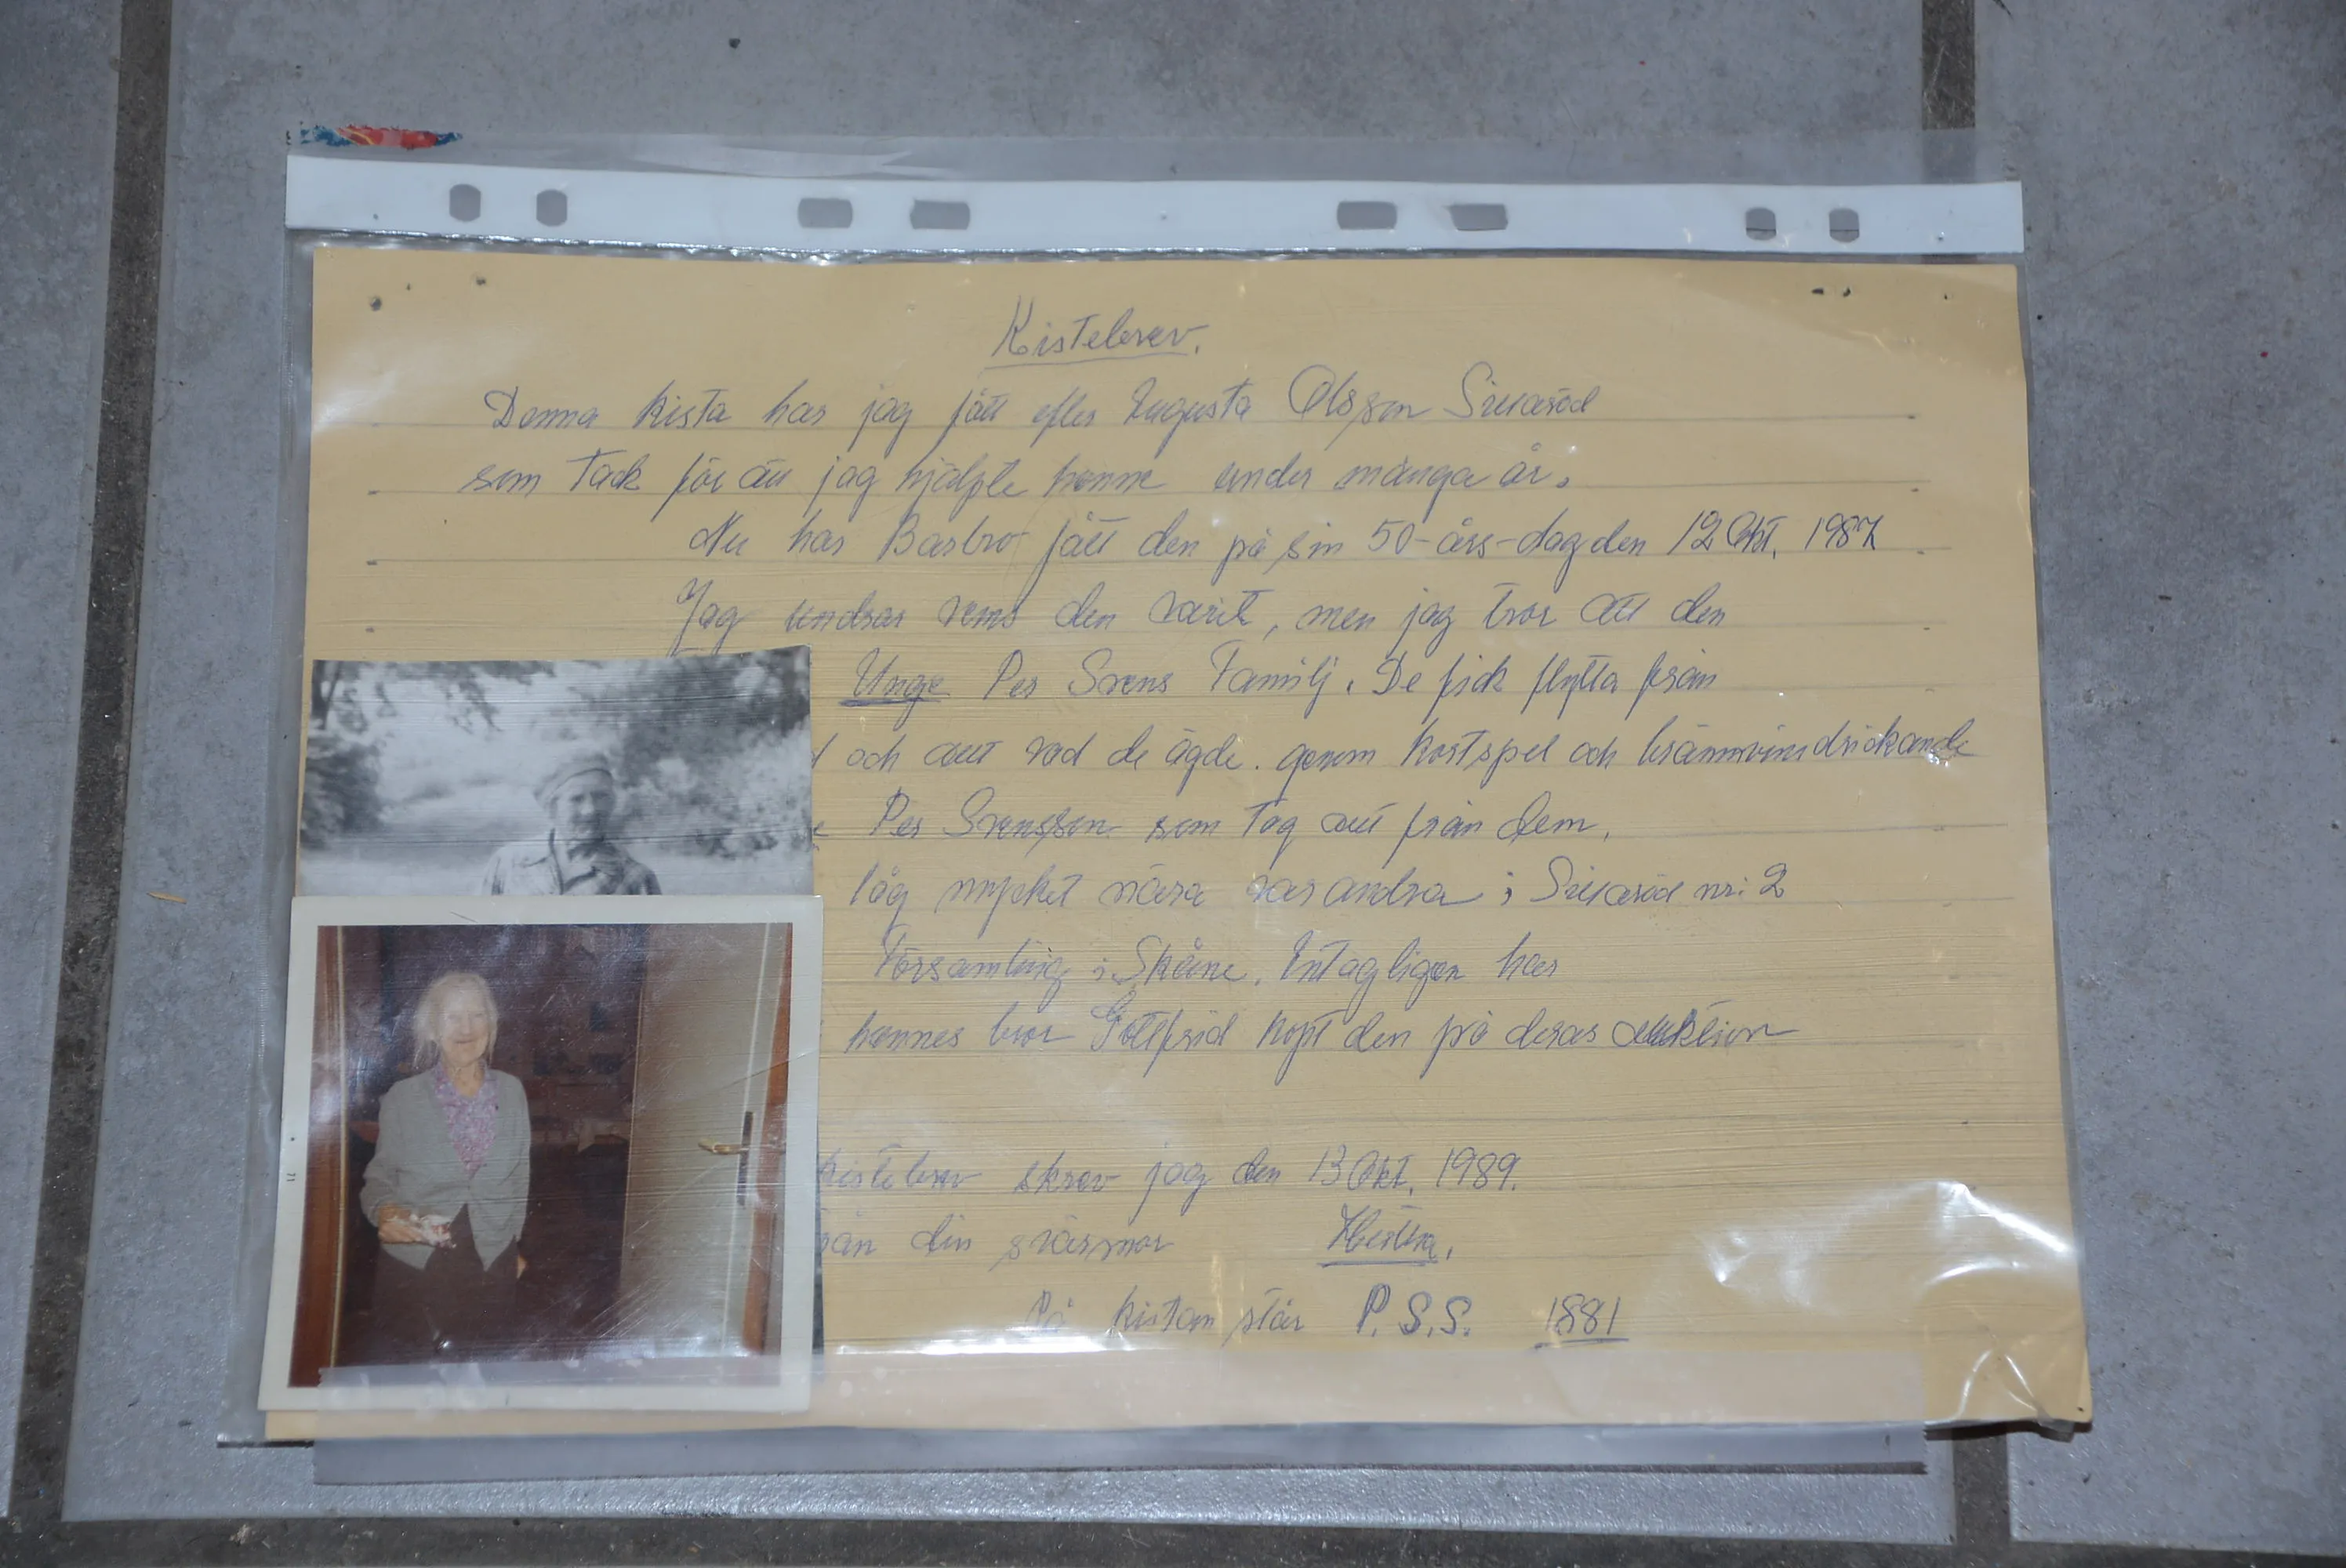 Kistebrev.
Denna kista har jag fått efter Augusta Olsson
som Tack för att jag hjälpte henne under många år.
Nu har Barbro fått den på sin 50-års-dag den 12 Okt. 1987
Jag undrar vems den varit, men jag tror att den
Unge Per Svens Familj. De fick flytta från
och allt vad de ägde. genom Kortspel och brännvinsdrickande
Per Svensson som Tog allt från dem.
låg mycket nära varandra i nr: 2
Församling i Skåne. Antagligen har
hennes bror Gottfrid köpt den på deras auktion
Kistebrev skrev jag den 13 Okt. 1989.
från din svärmor
På kistan står P.S.S. 1881